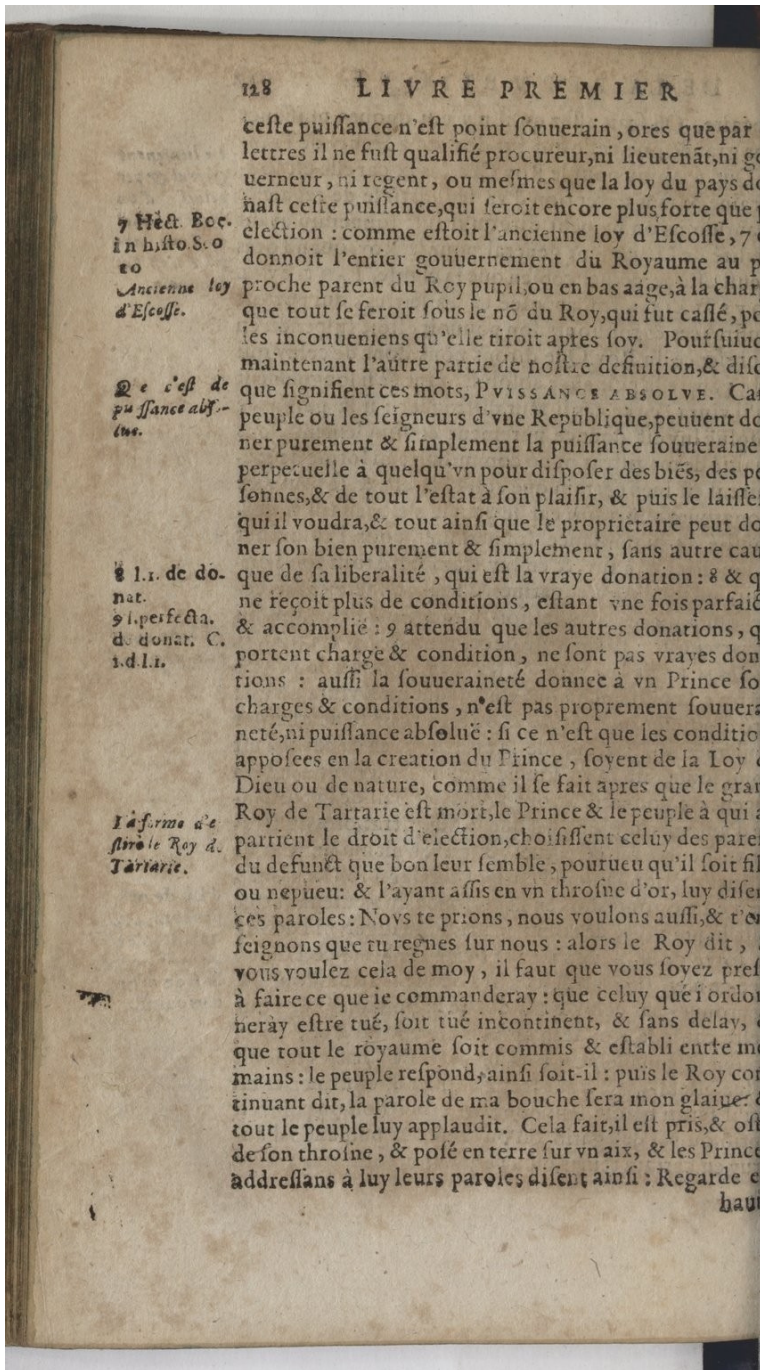 128 LIVRE PREMIER
ceste puissance n'est point souuerain, ores que par
lettres il ne fust qualifié procureur, ni lieutenāt, ni go
uerneur, ni regent, ou mesmes que la loy du pays do
nast ceste puissance, qui seroit encore plus forte que
election : comme estoit l'ancienne loy d'Escosse, 7
donnoit l'entier gouuernement du Royaume au p
proche parent du Roy pupil, ou en bas aage, à la char
que tout se feroit sous le nō du Roy, qui fut cassé, po
les inconueniens qu'elle tiroit apres soy. Poursuiuo
maintenant l'autre partie de nostre definition, & diso
que signifient ces mots, PVISSANCE ABSOLVE. Car
peuple ou les seigneurs d'vne Republique, peuuent do
ner purement & simplement la puissance souueraine
perpetuelle à quelqu'vn pour disposer des biēs, des pe
sonnes, & de tout l'estat à son plaisir, & puis le laisse
qui il voudra, & tout ainsi que le proprietaire peut do
ner son bien purement & simplement, sans autre cau
que de sa liberalité, qui est la vraye donation : 8 & q
ne reçoit plus de conditions, estant vne fois parfaic
& accomplie : 9 attendu que les autres donations, q
portent charge & condition, ne sont pas vrayes don
tions : aussi la souueraineté donnee à vn Prince so
charges & conditions, n'est pas proprement souuera
neté, ni puissance absoluë : si ce n'est que les conditio
apposees en la creation du Prince, soyent de la Loy
Dieu ou de nature, comme il se fait apres que le gran
Roy de Tartarie est mort, le Prince & le peuple à qui a
partient le droit d'election, choisissent celuy des pare
du defunct que bon leur semble, pourueu qu'il soit fil
ou nepueu : & l'ayant assis en vn throsne d'or, luy disen
ces paroles : Novs te prions, nous voulons aussi, & t'en
seignons que tu regnes sur nous : alors le Roy dit,
vous voulez cela de moy, il faut que vous soyez pres
à faire ce que ie commanderay : que celuy que i'ordon
neray estre tué, soit tué incontinent, & sans delay,
que tout le royaume soit commis & establi entre me
mains : le peuple respond, ainsi soit-il : puis le Roy con
tinuant dit, la parole de ma bouche sera mon glaiue
tout le peuple luy applaudit. Cela fait, il est pris, & ost
de son throsne, & posé en terre sur vn aix, & les Prince
addressans à luy leurs paroles disent ainsi : Regarde e
haut
7 Hect. Boe.
in histo. Sco
to
Ancienne loy
d'Escosse.
Que c'est de
puissance abso-
lue.
8 l.1. de do-
nat.
9 l. perfecta.
de donat. C.
1.d.l.1.
La forme d'e
slire le Roy de
Tartarie.